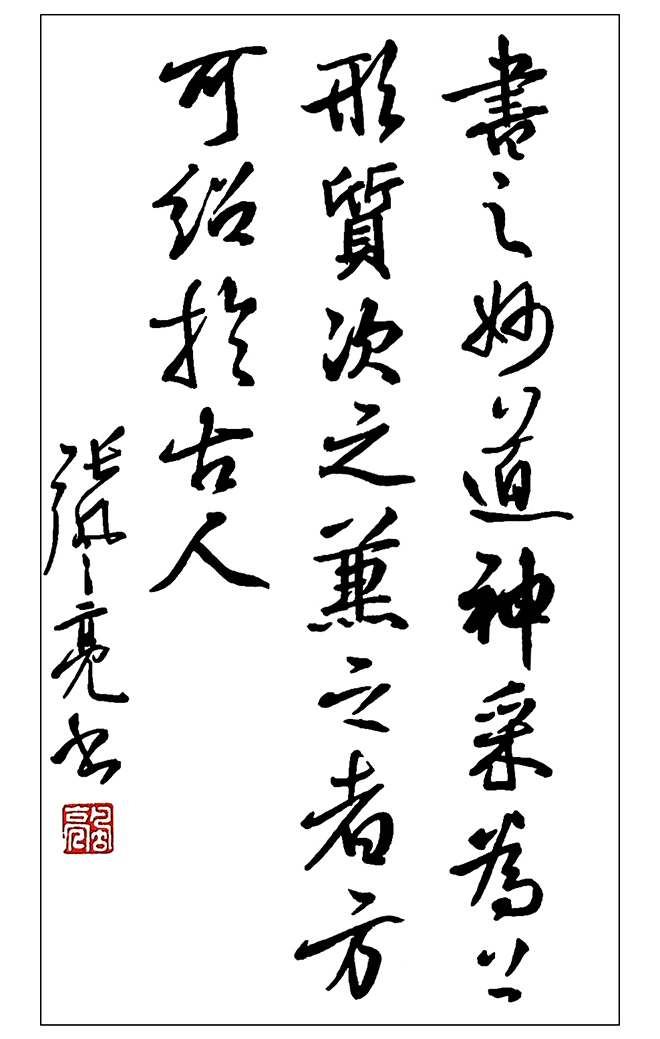 書之妙道神采為上
形質次之兼之者方
可紹於古人
張鳳亮書